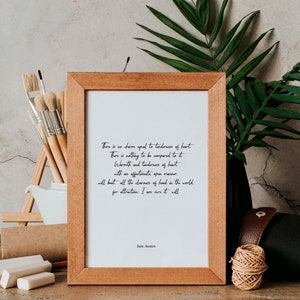 There is no charm equal to tenderness of heart.
There is nothing to be compared to it.
Warmth and tenderness of heart,
with an affectionate, open manner,
will beat all the clearness of head in the world,
for attraction: I am sure it will.
Jane Austen